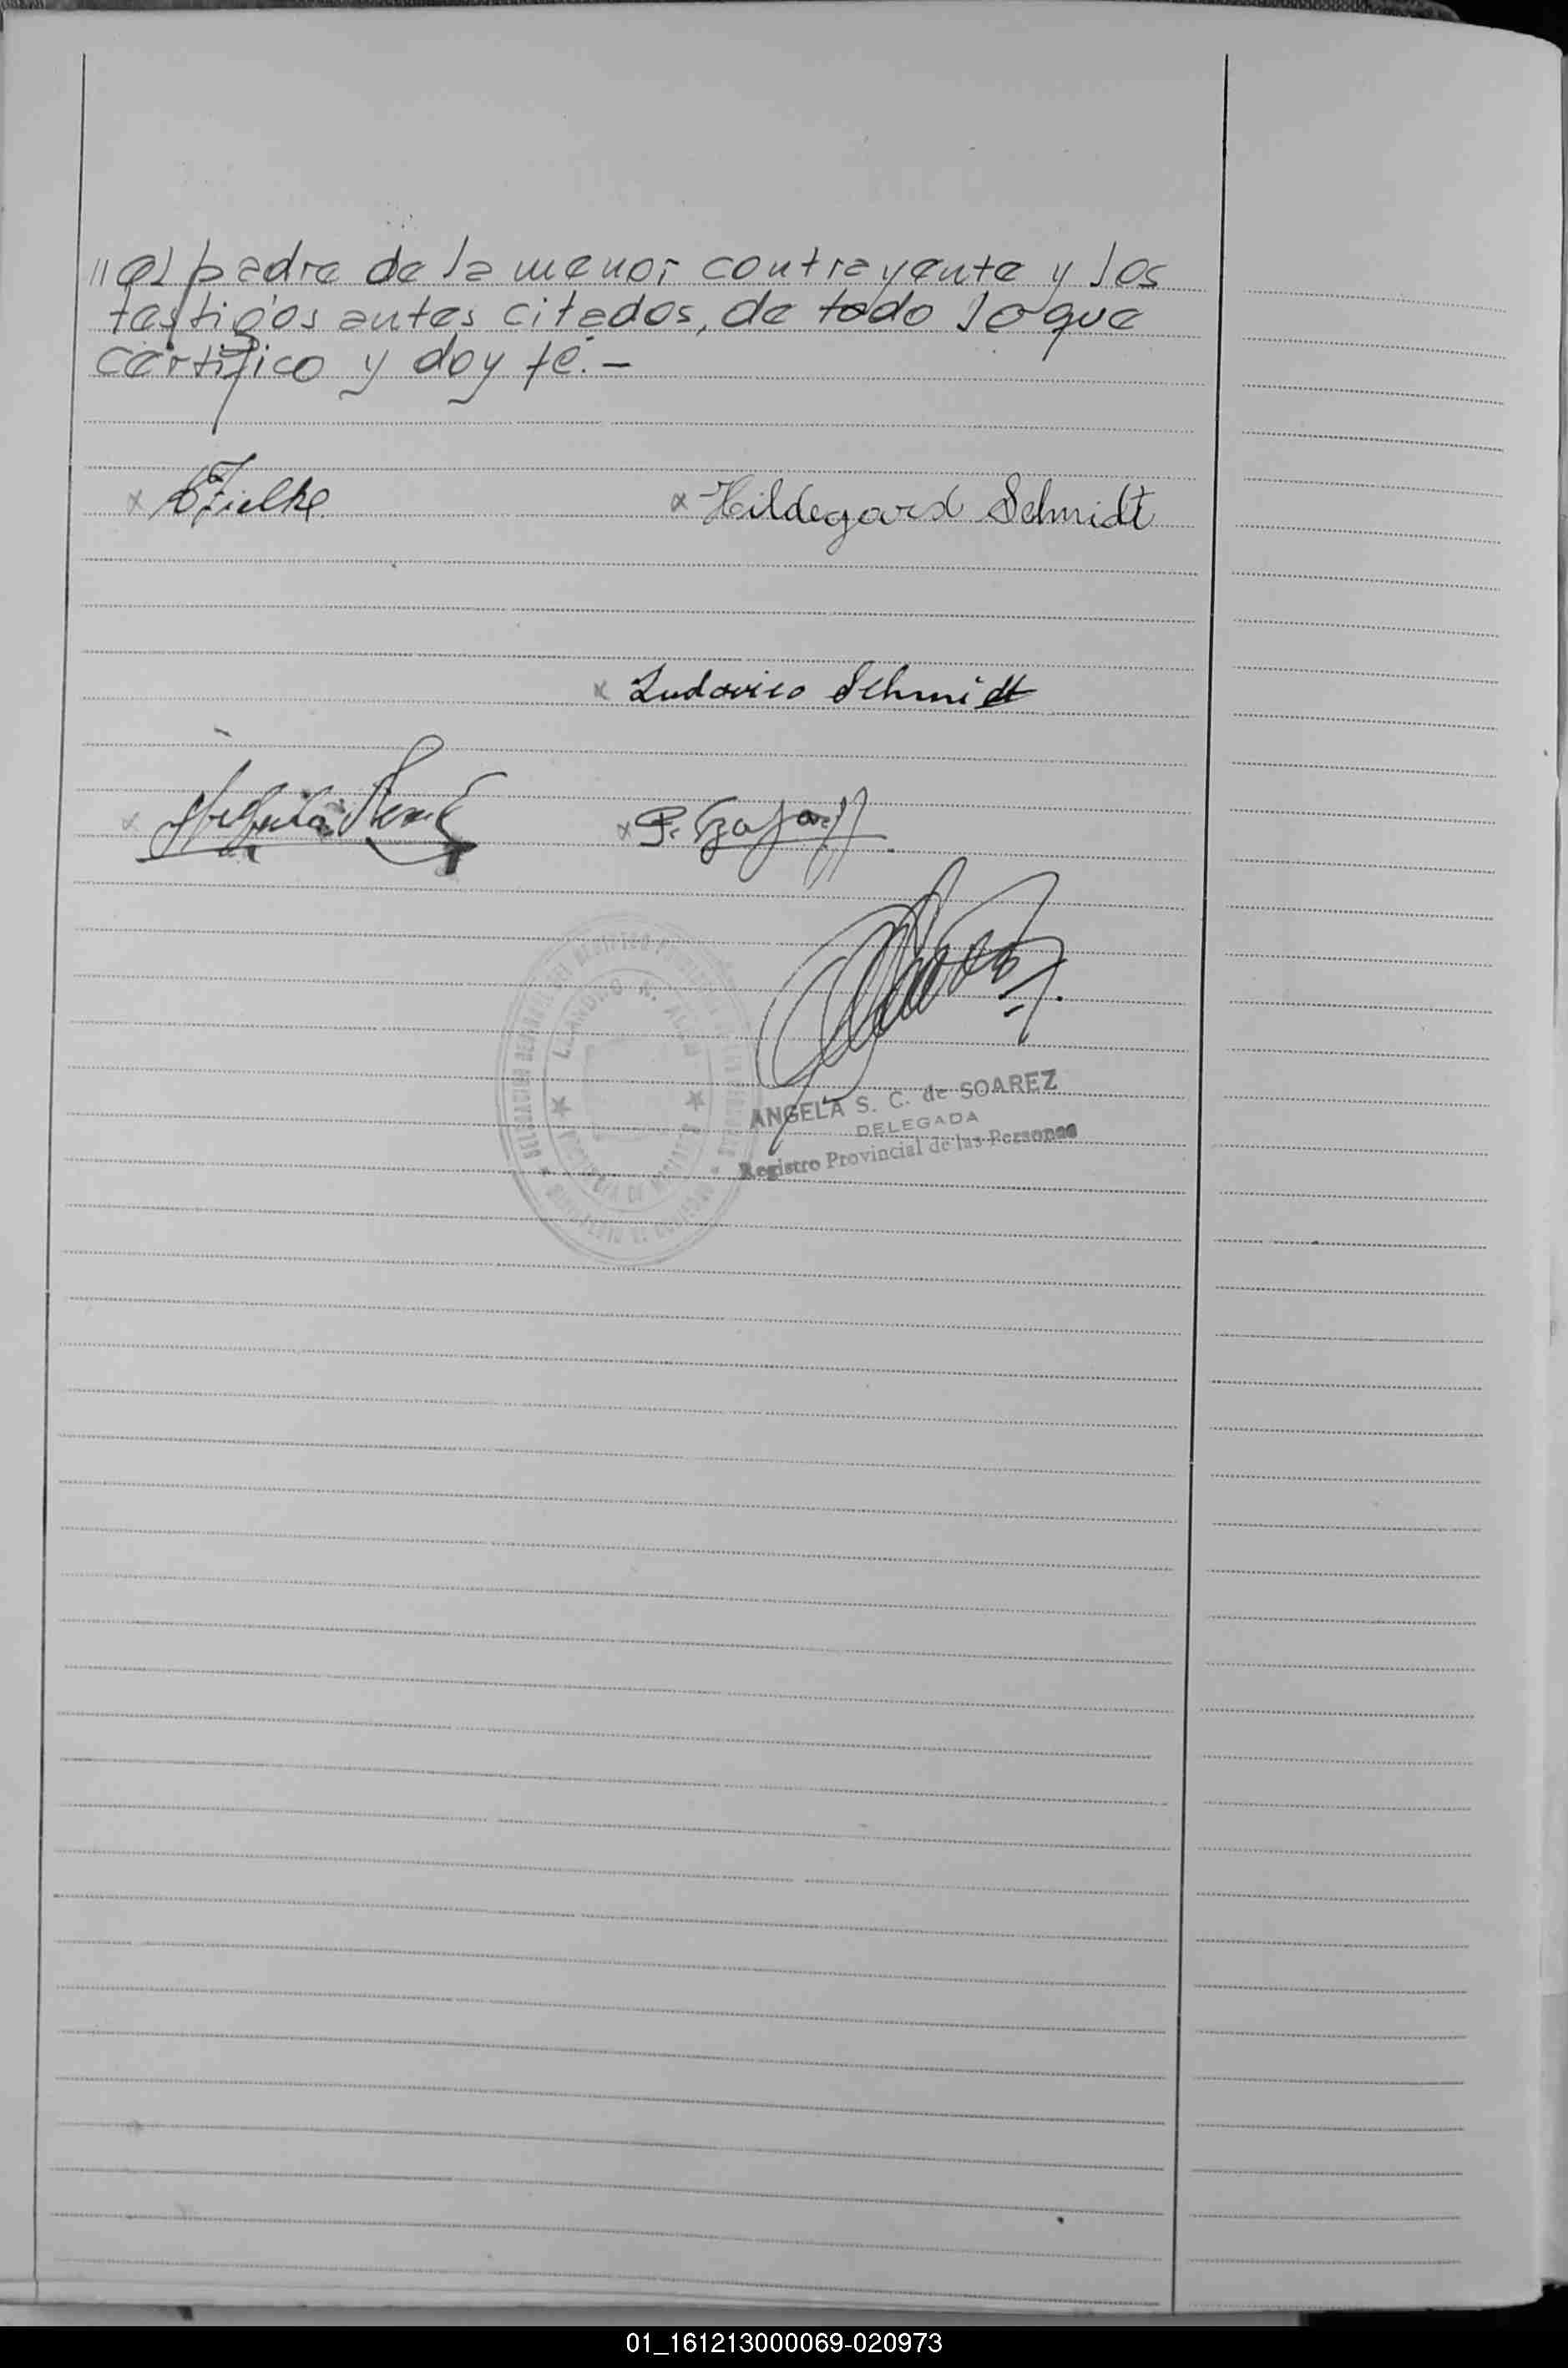 "el padre de la menor contrayente y los
testigos antes citados, de todo lo que
certifico y doy fé. -
x Zielke x Hildegard Schmidt
x Ludovico Schmidt
x x P.
LEANDRO N. ALEM
ANGELA S. C. de SOAREZ
DELEGADA
Registro Provincial de las Personas
01_161213000069-020973